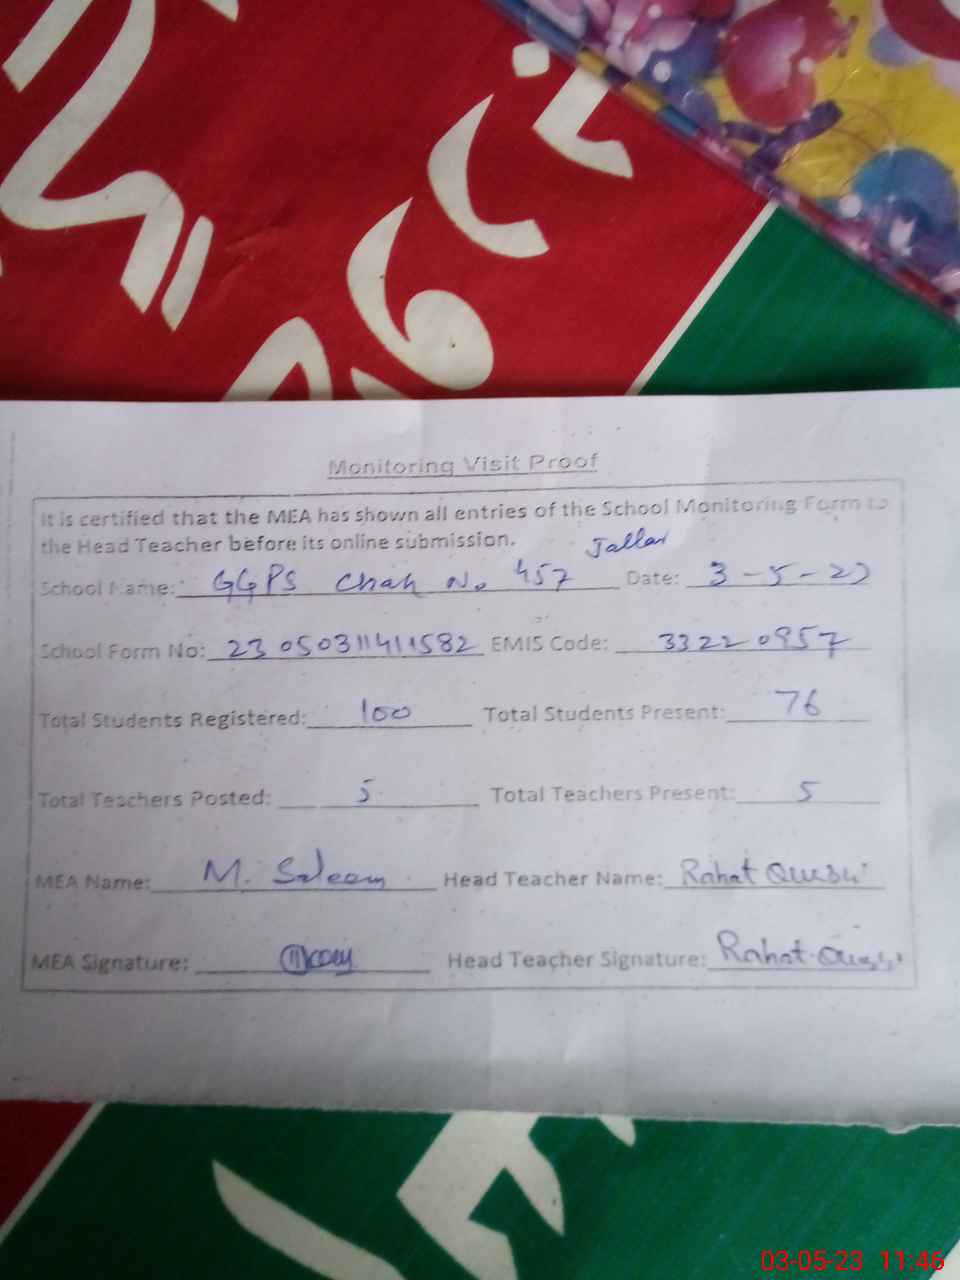 Monitoring Visit Proof
It is certified that the MEA has shown all entries of the School Monitoring Form to
the Head Teacher before its online submission.
School Name: GGPS Chak No 457 Jallar Date: 3-5-23
School Form No: 23050311411582 EMIS Code: 33220957
Total Students Registered: 100 Total Students Present: 76
Total Teachers Posted: 5 Total Teachers Present: 5
MEA Name: M. Saleem Head Teacher Name: Rahat Qureshi
MEA Signature: Head Teacher Signature: Rahat Qureshi
03-05-23 11:46